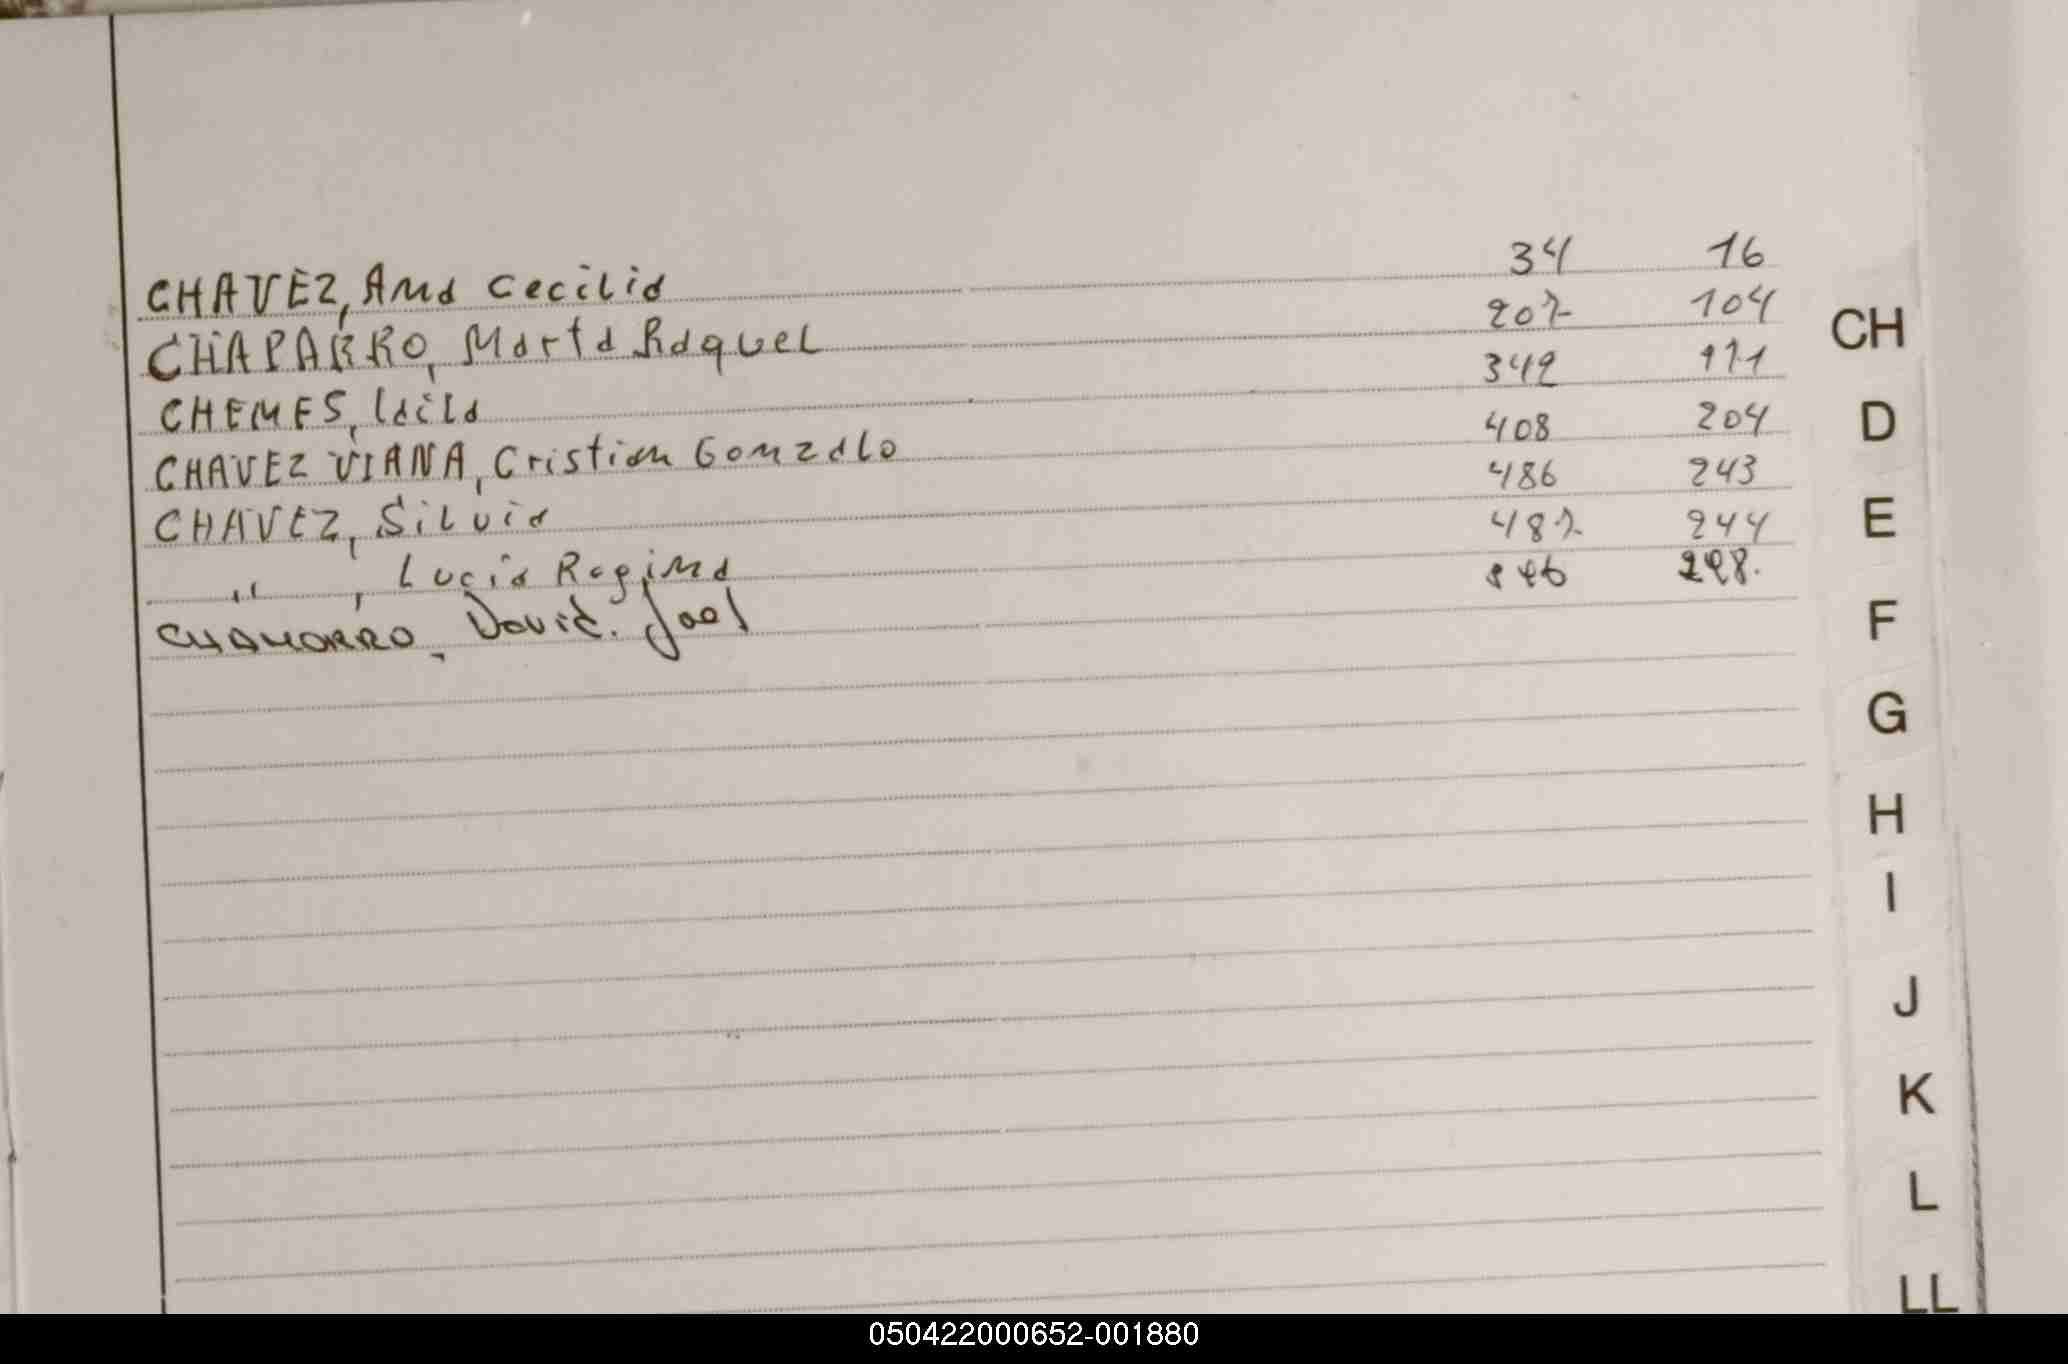 CHAVEZ, Ana Cecilia 34 16
CHAPARRO, Marta Raquel 207 104
CHEMES, Laila 342 171
CHAVEZ VIANA, Cristian Gonzalo 408 204
CHAVEZ, Silvia 486 243
,, , Lucia Regina 487 244
CHAMORRO, David. Joel 298.
CH
D
E
F
G
H
I
J
K
L
LL
050422000652-001880